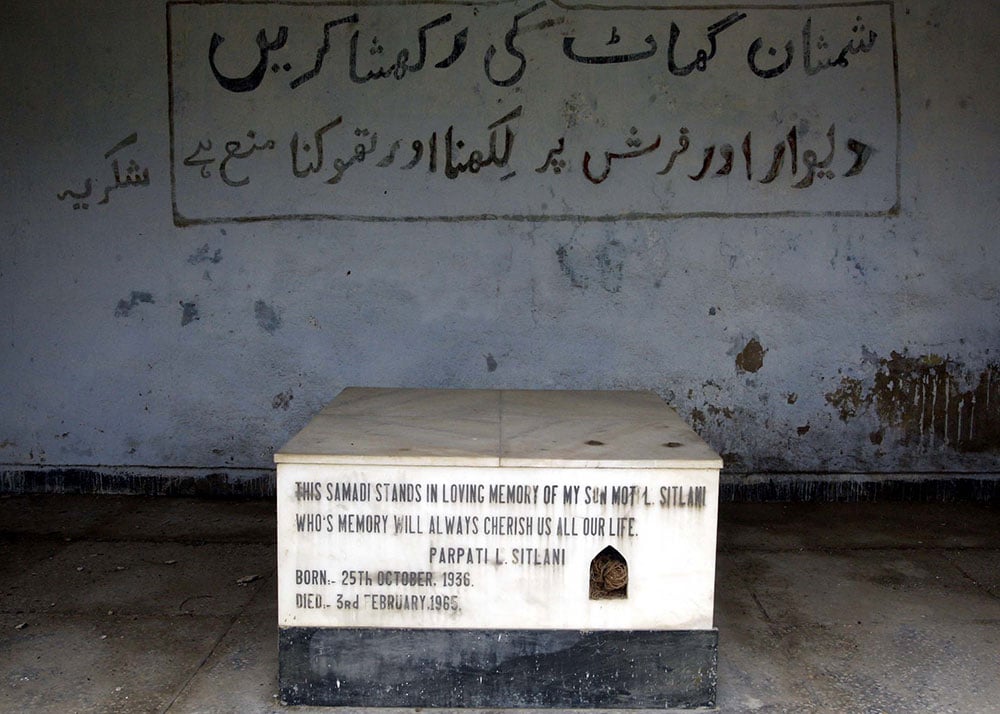 شمشان گھاٹ کی رکھشا کریں
دیوار اور فرش پر لِکھنا اور تھوکنا منع ہے
شکریہ
THIS SAMADI STANDS IN LOVING MEMORY OF MY SUN MOTI L. SITLANI
WHO'S MEMORY WILL ALWAYS CHERISH US ALL OUR LIFE.
PARPATI L. SITLANI
BORN:- 25TH OCTOBER, 1936.
DIED:- 3rd FEBRUARY.1965.